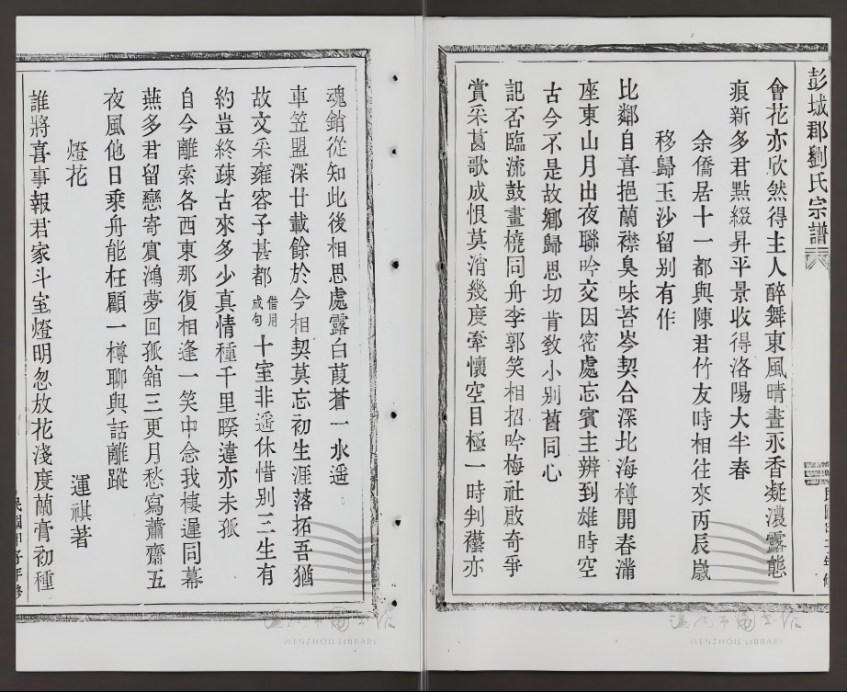 彭城郡劉氏宗譜
會花亦欣然得主人醉舞東風晴晝永香凝濃露態
痕新多君點綴昇平景收得洛陽大半春
余僑居十一都與陳君竹友時相往來丙辰歲
移歸玉沙留別有作
比鄰自喜挹蘭襟臭味苔岑契合深北海樽開春滿
座東山月出夜聯吟交因密處忘賓主辨到雄時空
古今不是故鄉歸思切肯教小別舊同心
記否臨流鼓畫橈同舟李郭笑相招吟梅社啟奇爭
賞采葛歌成恨莫消幾度牽懷空目極一時判襼亦
魂銷從知此後相思處露白葭蒼一水遥
車笠盟深廿載餘於今相契莫忘初生涯落拓吾猶
故文采雍容子甚都借用成句十室非遥休惜別三生有
約豈終疎古來多少真情種千里暌違亦未孤
自今離索各西東那復相逢一笑中念我棲遲同幕
燕多君留戀寄賓鴻夢回孤舘三更月愁寫蕭齋五
夜風他日乘舟能枉顧一樽聊與話離蹤
燈花 運祺著
誰將喜事報君家斗室燈明忽放花淺度蘭膏初種
民國甲子年修
WENZHOU LIBRARY
WENZHOU LIBRARY